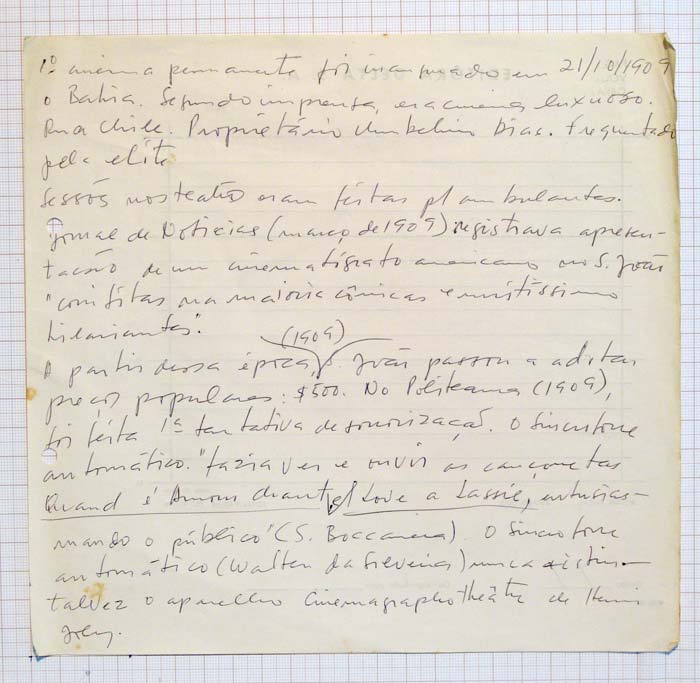 1º cinema permanente foi inaugurado em 21/10/1909
o Bahia. Segundo imprensa, era cinema luxuoso.
Rua Chile. Proprietário Umbelino Dias. Frequentado
pela elite
Sessões nos teatros eram feitas p/ ambulantes.
Jornal de Notícias (março de 1909) registrava apresen-
tação de um cinematógrafo americano no S. João
"com fitas na maioria cômicas e muitíssimo
hilariantes".
(1909)
A partir dessa época, S. João passou a adotar
preços populares: $500. No Politeama (1909),
foi feita 1ª tentativa de sonorização. O Sincrofone
automático. "fazia ver e ouvir as cançonetas
Quand l'Amour chante, I Love a Lassie, entusias-
mando o público" (S. Boccanera). O Sincrofone
automático (Walter da Silveira) nunca existiu
talvez o aparelho Cinemagraphothéâtre de Henri
Joly.